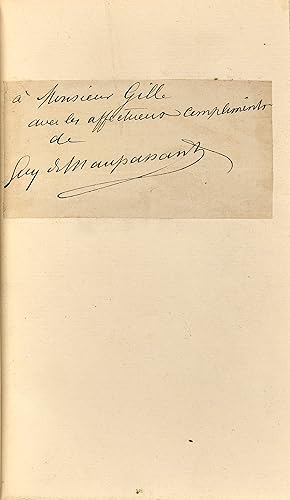 à Monsieur Gille
avec les affectueux compliments
de
Guy de Maupassant